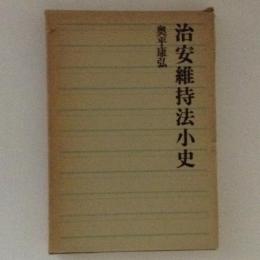 治安維持法小史
奥平康弘